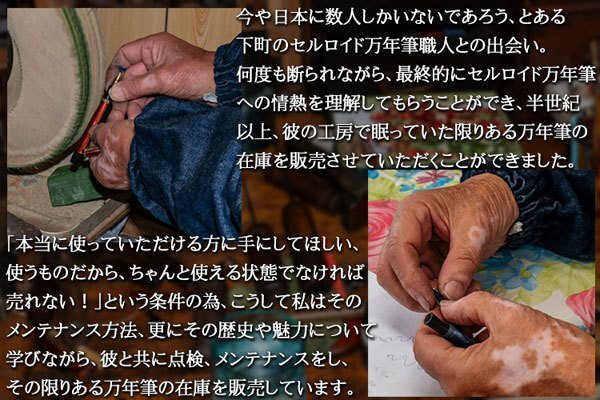 今や日本に数人しかいないであろう、とある
下町のセルロイド万年筆職人との出会い。
何度も断られながら、最終的にセルロイド万年筆
への情熱を理解してもらうことができ、半世紀
以上、彼の工房で眠っていた限りある万年筆の
在庫を販売させていただくことができました。
「本当に使っていただける方に手にしてほしい、
使うものだから、ちゃんと使える状態でなければ
売れない！」という条件の為、こうして私はその
メンテナンス方法、更にその歴史や魅力について
学びながら、彼と共に点検、メンテナンスをし、
その限りある万年筆の在庫を販売しています。